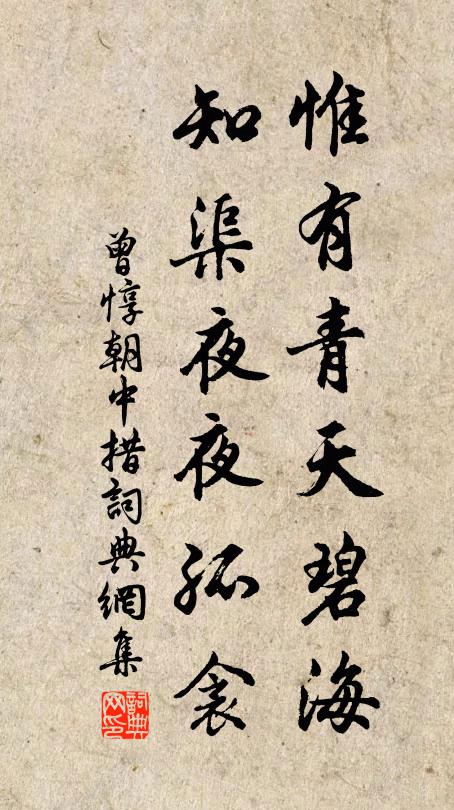 惟有青天碧海
知渠夜夜孤衾
曾惇朝中措詞典網集
詞典网印